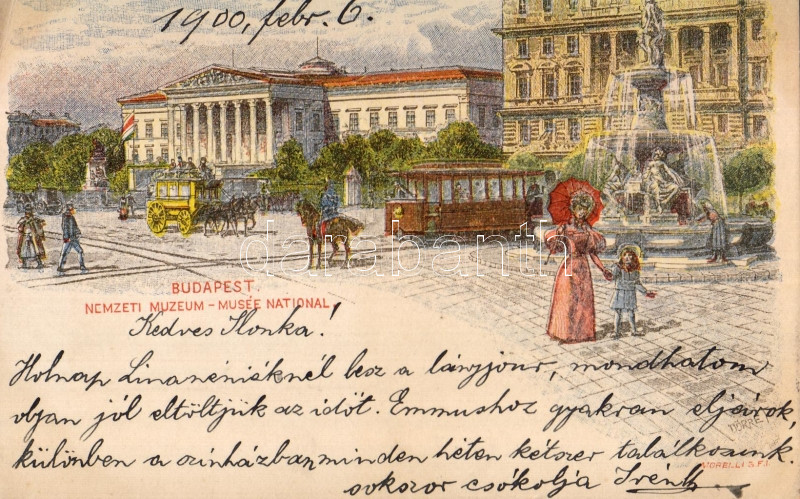 1900, febr. 6.
darabanth
BUDAPEST.
NEMZETI MUZEUM – MUSÉE NATIONAL
Kedves Ilonka!
Holnap Linanéniéknél lesz a lányjour, mondhatom
olyan jól eltöltjük az időt. Emmushoz gyakran eljárok,
különben a színházban minden héten kétszer találkozunk.
MORELLI S.F.I.
sokszor csókolja Irén